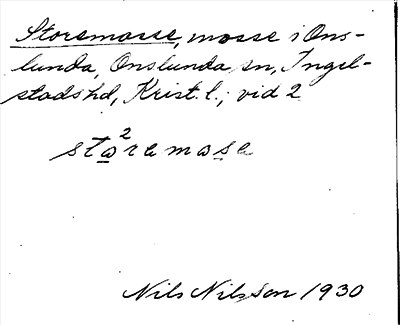 Storemosse, mosse i Ons-
lunda, Onslunda sn, Ingel-
stads hd, Krist. l.; vid 2
sta²remase
Nils Nilsson 1930